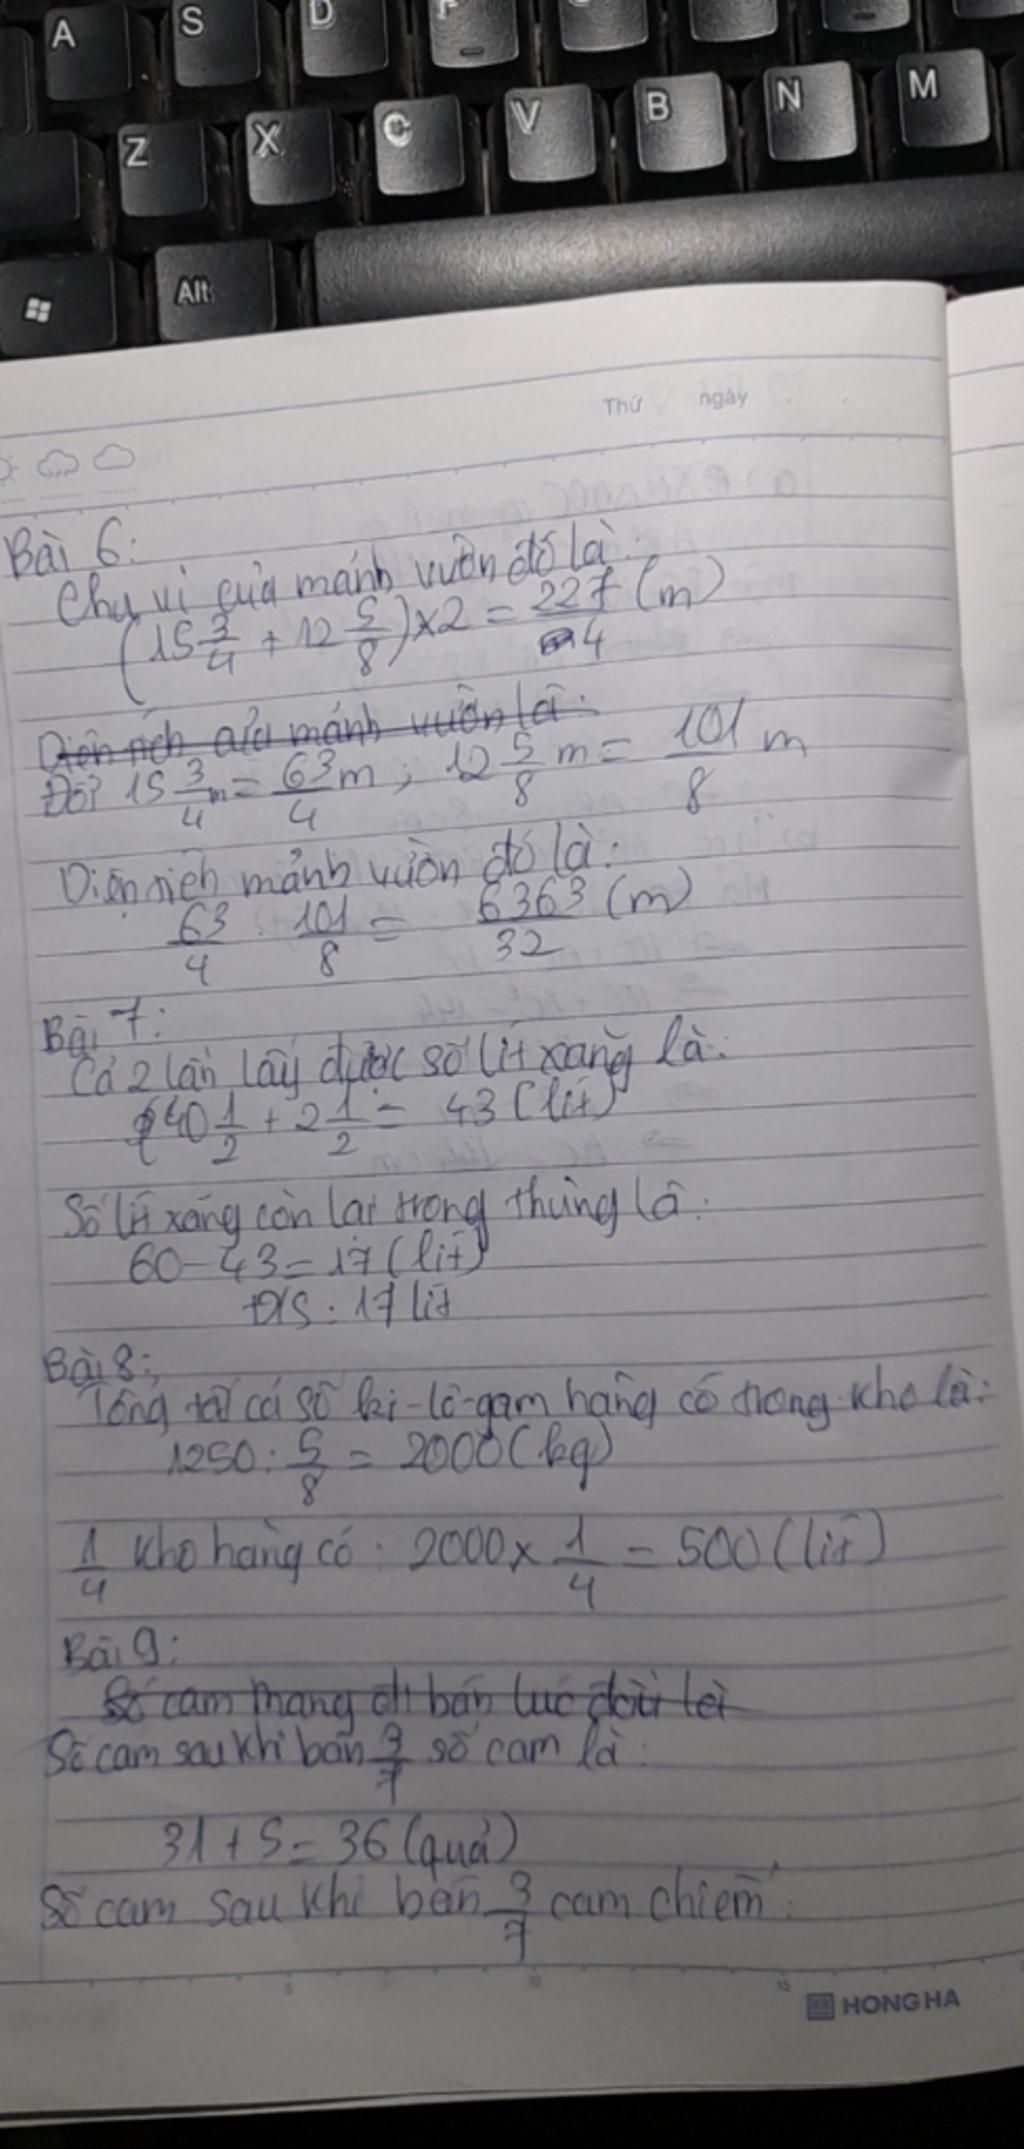 A S D F
Z X C V B N M
Alt
Thứ ngày
Bài 6:
Chu vi của mảnh vườn đó là:
(15 3/4 + 12 5/8) x 2 = 227/4 (m)
Diện tích của mảnh vườn là:
Đổi 15 3/4 m = 63/4 m ; 12 5/8 m = 101/8 m
Diện tích mảnh vườn đó là:
63/4 . 101/8 = 6363/32 (m)
Bài 7:
Cả 2 lần lấy được số lít xăng là:
40 1/2 + 2 1/2 = 43 (lít)
Số lít xăng còn lại trong thùng là:
60 - 43 = 17 (lít)
Đ/S: 17 lít
Bài 8:
Tổng tất cả số ki-lô-gam hàng có trong kho là:
1250 : 5/8 = 2000 (kg)
1/4 kho hàng có : 2000 x 1/4 = 500 (lít)
Bài 9:
Số cam mang đi bán lúc đầu là
Số cam sau khi bán 3/7 số cam là:
31 + 5 = 36 (quả)
Số cam sau khi bán 3/7 cam chiếm:
5 10 15
HONG HA